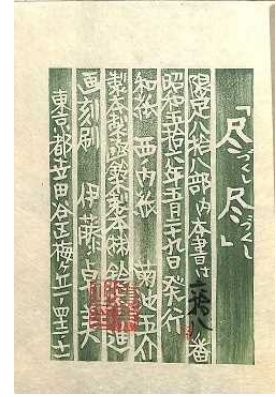 「尽尽」
づくしづくし
限定八拾八部内本書は 六拾八 番
昭和五拾六年五月二十九日発行
和紙 西ノ内紙 菊池五介
製本製函鈴木製本株 鈴
画刻刷 伊藤卓美
東京都世田谷区梅ヶ丘一ノ四三ノ十二